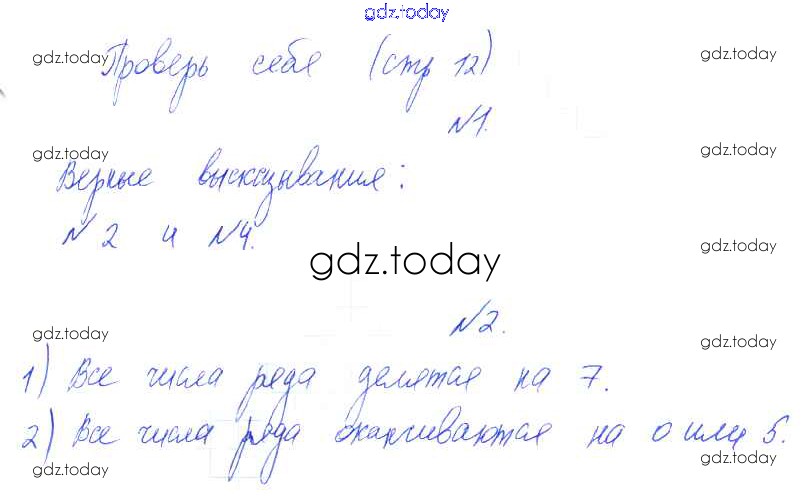 gdz.today
Проверь себя (стр 12)
gdz.today
gdz.today
№1.
gdz.today
gdz.today
Верные высказывания:
№2 и №4.
gdz.today
gdz.today
№2.
gdz.today
gdz.today
1) Все числа ряда делятся на 7.
2) Все числа ряда оканчиваются на 0 или 5.
gdz.today
gdz.today